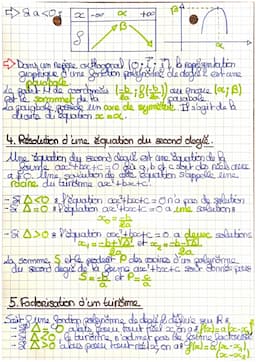 ⇨ Si a<0 :
x -∞ α +∞
f β
β
α
⇨ Dans un repère orthogonal (O; I; J), la représentation
graphique d'une fonction polynôme de degré 2 est une
parabole.
Le point M de coordonnées
(α; β)
est le sommet de la parabole.
La parabole possède un axe de symétrie. Il s'agit de la
droite d'équation x=α.
4. Résolution d'une équation du second degré.
Une équation du second degré est une équation de la
forme ax²+bx+c=0 où a, b et c sont des réels avec
a≠0. Une solution de cette équation s'appelle une
racine du trinôme ax²+bx+c.
- Si Δ<0 : l'équation ax²+bx+c=0 n'a pas de solution
- Si Δ=0 : l'équation ax²+bx+c=0 a une solution :
x₀=-b/2a
- Si Δ>0 : l'équation ax²+bx+c=0 a deux solutions
x₁=-b-√Δ/2a et x₂=-b+√Δ/2a
La somme S et le produit P des racines d'un polynôme
du second degré de la forme ax²+bx+c sont donnés par
S=-b/a et P=c/a
5. Factorisation d'un trinôme.
Soit f une fonction polynôme de degré 2 définie sur R :
- Si Δ=0 alors pour tout réel x, on a f(x)=a(x-x₀)²
- Si Δ<0 le trinôme n'admet pas de forme factorisée
- Si Δ>0 alors pour tout réel x, on a f(x)=a(x-x₁)(x-x₂)